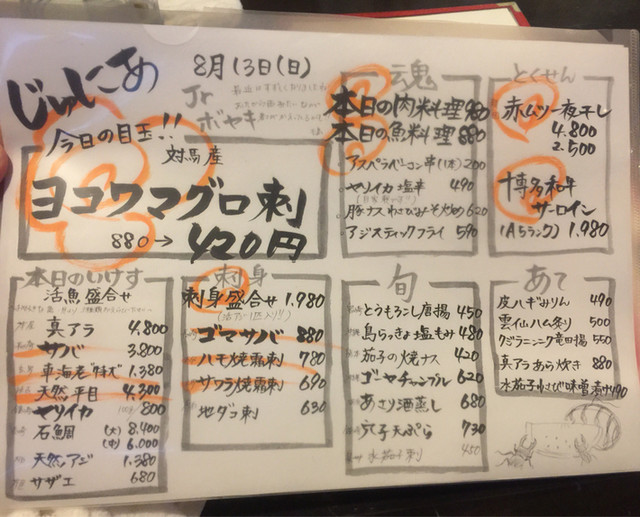 じゅにあ
8月13日(日)
Jr
ボヤキ
今日の目玉!!
対馬産
ヨコワマグロ刺
880→420円
魂
本日の肉料理980
本日の魚料理880
アスパラベーコン串(1本)200
ヤリイカ塩辛 490
豚ナスわさびみそ炒め620
アジスティックフライ 590
とくせん
赤ムツ一夜干し
4.800
2.500
博多和牛
サーロイン
(A5ランク) 1.980
本日のいけす
活魚盛合せ
真アラ 4.800
サバ 3.800
車海老"特大" 1.380
天然平目 4.300
ヤリイカ 100g 800
石鯛 (大) 8.400
(中) 6.000
天然アジ 1.380
サザエ 680
刺身
刺身盛合せ 1.980
ゴマサバ 880
ハモ焼霜刺 780
サワラ焼霜刺 690
地ダコ刺 630
旬
とうもろこし唐揚 450
島らっきょ塩もみ 480
茄子の焼ナス 420
ゴーヤチャンプル 620
あさり酒蒸し 680
穴子天ぷら 730
水茄子刺 450
あて
皮ハギみりん 490
雲仙ハム炙り 500
クジラミニング竜田揚 550
真アラあら炊き 880
水茄子わさび味噌漬け490